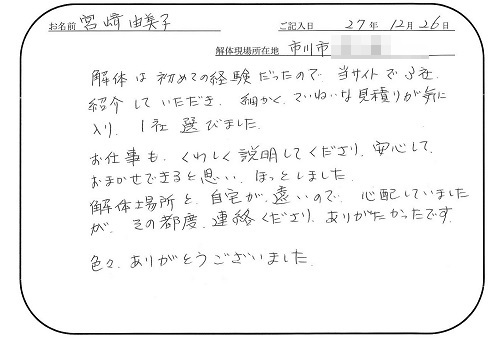 お名前 宮崎 由美子 ご記入日 27年 12月 26日
解体現場所在地 市川市
解体は初めての経験だったので、当サイトで3社、
紹介していただき、細かく、ていねいな見積りが気に
入り、1社選びました。
お仕事も、くわしく説明してくださり、安心して、
おまかせできると思い、ほっとしました。
解体場所と、自宅が、遠いので、心配していました
が、その都度、連絡くださり、ありがたかったです。
色々、ありがとうございました。